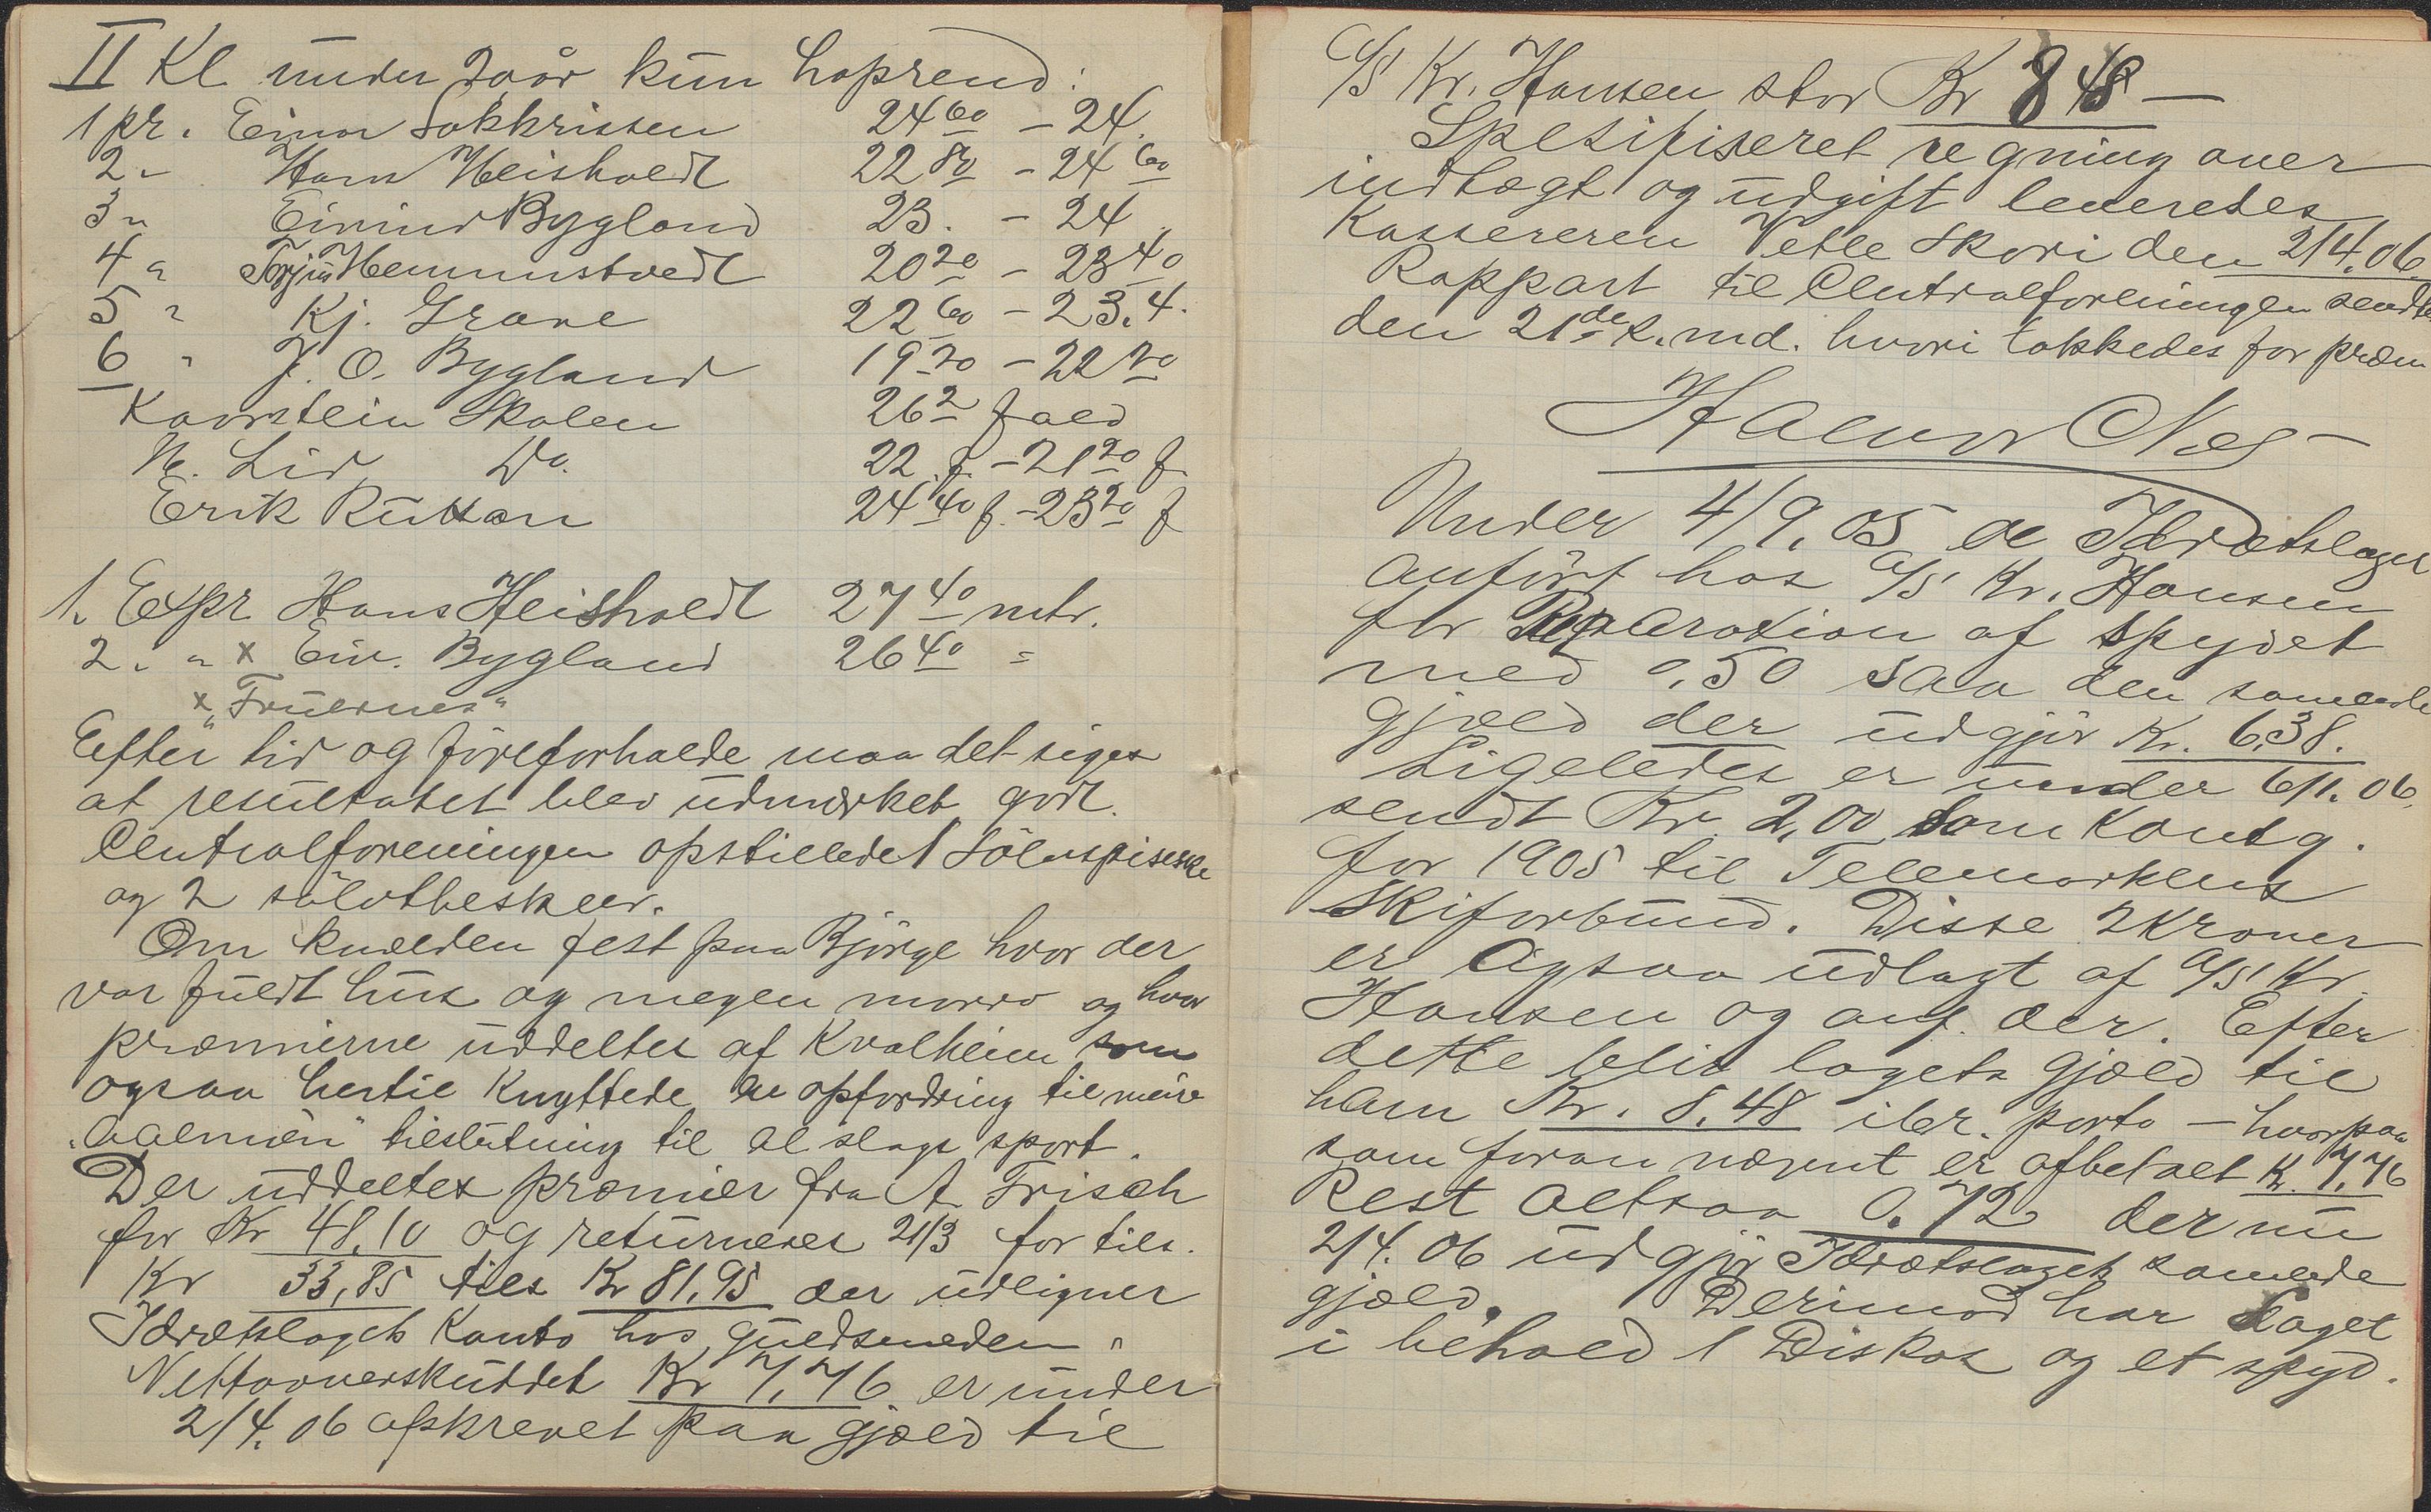 II Kl under 20 år kun hoprend:
1 pr. Einar Sakkrissen 24 60 - 24.
2 " Hans Heisholdt 22 80 - 24 60
3 " Eivind Bygland 23. - 24
4 " Torjus Hemmestvedt 20 20 - 23 40
5 " Kj. Grave 22 60 - 23.4.
6 " J. O. Bygland 19 20 - 22 20
Kavrstein Skalen 26 2 fald
N. Lid Do. 22 f. - 21 20 f.
Erik Rukan 24 40 f. - 23 20 f
1. Expr Hans Heisholdt 27 40 mtr.
2. " x Eiv. Bygland 26 40 =
x "Fruernes"
Efter tid og föreforholde maa det siges
at resultatet blev udmærket godt.
Centralforeningen opstillede 1 Sölvspiseske
og 2 sölvtheskeer.
Om kvælden fest paa Björge hvor der
var fuldt hus og megen morro og hvor
præmierne uddeltes af Kvalheim som
ogsaa hertil knyttede en opfordring til mere
"aalmen" tilslutning til al slags sport.
Der uddeeltes præmier fra A Frisch
for Kr 48,10 og returneres 21/3 for tils.
Kr 33,85 tils Kr 81,95 der udligner
Idrætslagets Konto hos guldsmeden "
Nettooverskuddet Kr 7,76 er under
2/4. 06 afskrevet paa gjæld til
A/S Kr. Hansen stor Kr 8 48 —
Spesifiseret regning over
indtægt og udgift leveredes
Kassereren Vetle Skori den 2/4. 06.
Rapport til Centralforeningen sendtes
den 21de s. md. hvori takkedes for præm
Halvor Næs —
Under 4/9. 05 er Idrætslaget
anfört hos A/S Kr. Hansen
for Reparation af spydet
med 0,50 saa den samlede
gjæld der udgjör Kr. 6,38.
Ligeledes er under 6/1. 06.
sendt Kr 2,00 som Kontg.
for 1905 til Telemarkens
Skiforbund. Disse 2 kroner
er ogsaa udlagt af A/S Kr.
Hansen og anf. der. Efter
dette blir lagets gjæld til
ham Kr. 8.48 iber. porto — hvorpaa
som foran nævnt er afbetalt Kr. 7,76
Rest altsaa 0.72 der nu
2/4. 06 udgjör Idrætslagets samlede
gjæld. Derimod har Laget
i behold 1 Diskos og et spyd.